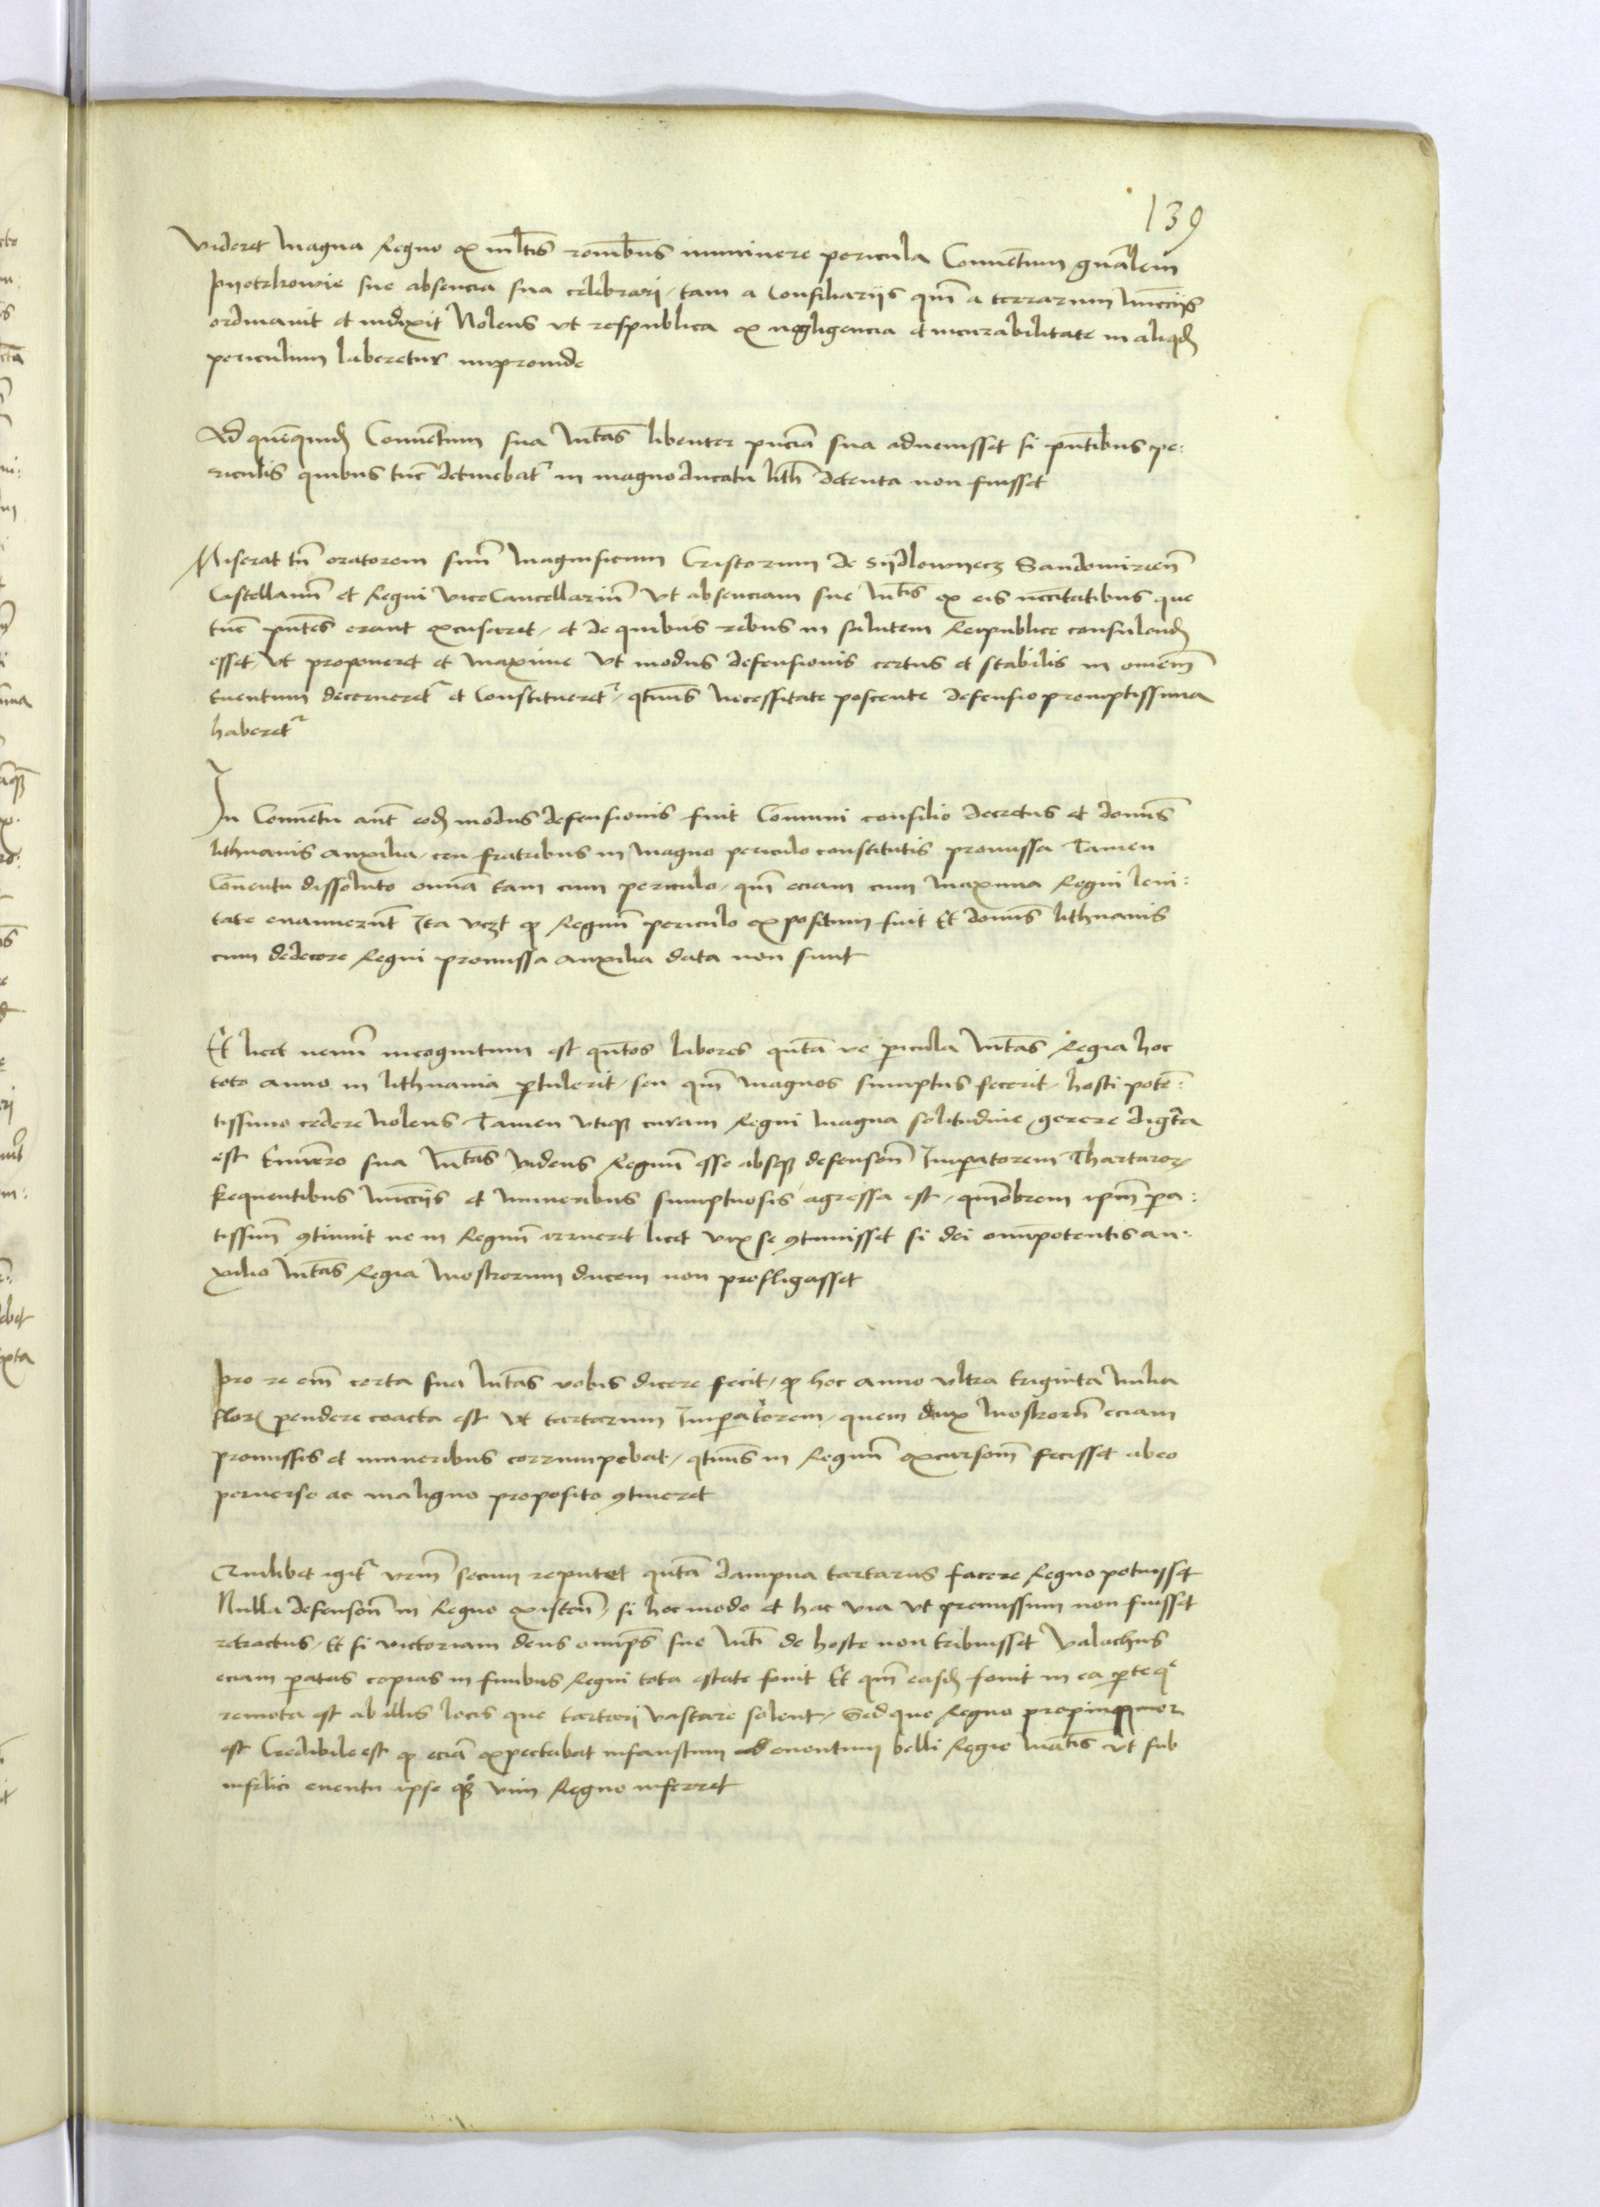 139
videret magna Regno ex mltis ronibus imminere pericula Conuentum gnalem
pyotrkowie sue absencia sua celebrari, tam a Consiliarijs qm a terrarum Nuncciis
ordinauit et indixit Nolens vt respublica ex negligencia et incurabilitate in aliqd
periculum laberetur improuide
Ad quequid Conuentum sua Mtas libenter pncia sua aduenisset si pntibus pe:
riculis quibus tuc detinebat in magnoducatu lith detenta non fuisset
Miserat tn oratorem suu Magnificum Cristorum de Sijdlowyecz Sandomirien
Castellanu et Regni viceCancellariu vt absenciam sue Mtis ex eis nccitatibus que
tuc pntes erant excusaret, et de quibus rebus in salutem Reipublice consulend
esset, vt proponeret et maxime vt modus defensionis certus et stabilis in omem
euentum decerneret et Constitueret, qtinus necessitate poscente defensio promptissima
haberet
In Conuetu aut eod modus defensionis fuit Comuni consilio decretus et domis
lithuanis auxilia, ceu fratribus in magno periculo constitutis promissa Tamen
Couentu dissoluto omia tam cum periculo, qm eciam cum maxima Regni leui:
tate euanuerut Ita vczt q Regnu periculo expositum fuit Et domis lithuanis
cum dedecore Regni promissa auxilia data non sunt
Et licet nemi incognitum est qntos labores qnta ve picula Mtas Regia hoc
toto anno in lithuania ptulerit, seu qm magnos sumptus fecerit, hosti pote:
tissimo cedere nolens Tamen vtiq curam Regni magna solitudine gerere dignta
est Enimero sua Mtas videns Regnu esse absq defenson Impatorem Thartaror
frequentibus Nucciis et muneribus sumptuosis agressa est, qmobrem ipm pa:
tissimu 9tinuit ne in Regnu irrueret licet vix se 9tinuisset si dei omipotentis au:
xilio Mtas Regia Moscorum ducem non profligasset
Pro re em certa sua Mtas vobis dicere fecit, q hoc anno vltra triginta milia
flor pendere coacta est vt tartarum Impatorem, quem dux Moscoru eciam
promissis et muneribus corrumpebat, qtinus in Regnu excursom fecisset ab eo
peruerso ac maligno proposito 9tineret
Quilibet igit vrm secum reputet qnta dampna tartarus facere Regno potuisset
Nulla defenson in Regno existen, si hoc modo et hac via vt premissum non fuisset
retractus, Et si victoriam deus omips sue Mti de hoste non tribuisset Valachus
eciam patas copias in finibus Regni tota estate fouit Et qm easd fouit in ea pte q
remota est ab illis locis que tartari vastare solent, Sed que Regno propinquior
est Credibile est q ecia expectabat infaustum euentum belli Regie Matis vt sub
infelici euentu ipse q3 vim Regno inferret